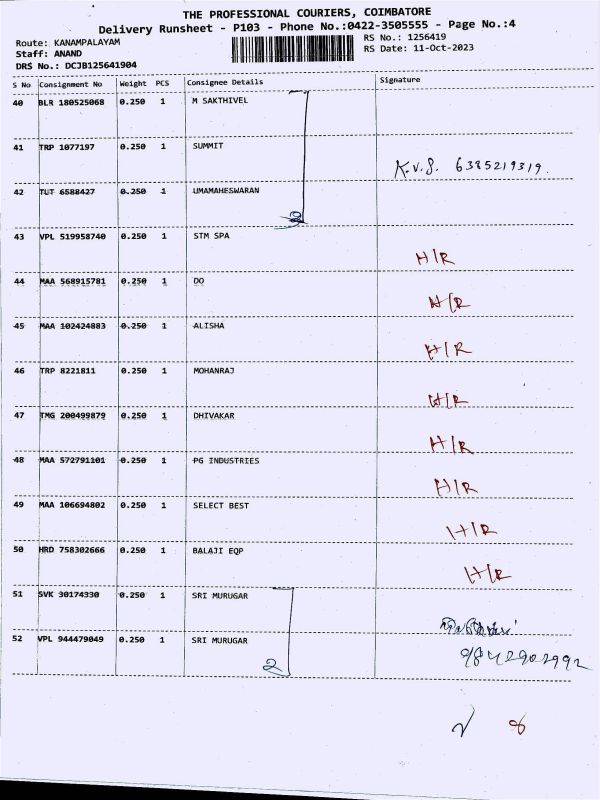 THE PROFESSIONAL COURIERS, COIMBATORE
Delivery Runsheet - P103 - Phone No.:0422-3505555 - Page No.:4
Route: KANAMPALAYAM RS No.: 1256419
Staff: ANAND RS Date: 11-Oct-2023
DRS No.: DCJB125641904
S No Consignment No Weight PCS Consignee Details Signature
40 BLR 180525068 0.250 1 M SAKTHIVEL
41 TRP 1077197 0.250 1 SUMMIT
K.V.S. 6385219319.
42 TUT 6588427 0.250 1 UMAMAHESWARAN
43 VPL 519958740 0.250 1 STM SPA
H/R
44 MAA 568915781 0.250 1 DO
H/R
45 MAA 102424883 0.250 1 ALISHA
H/R
46 TRP 8221811 0.250 1 MOHANRAJ
H/R
47 TMG 200499879 0.250 1 DHIVAKAR
H/R
48 MAA 572791101 0.250 1 PG INDUSTRIES
H/R
49 MAA 106694802 0.250 1 SELECT BEST
H/R
50 HRD 758302666 0.250 1 BALAJI EQP
H/R
51 SVK 30174330 0.250 1 SRI MURUGAR
52 VPL 944479049 0.250 1 SRI MURUGAR
2 9842902992
8